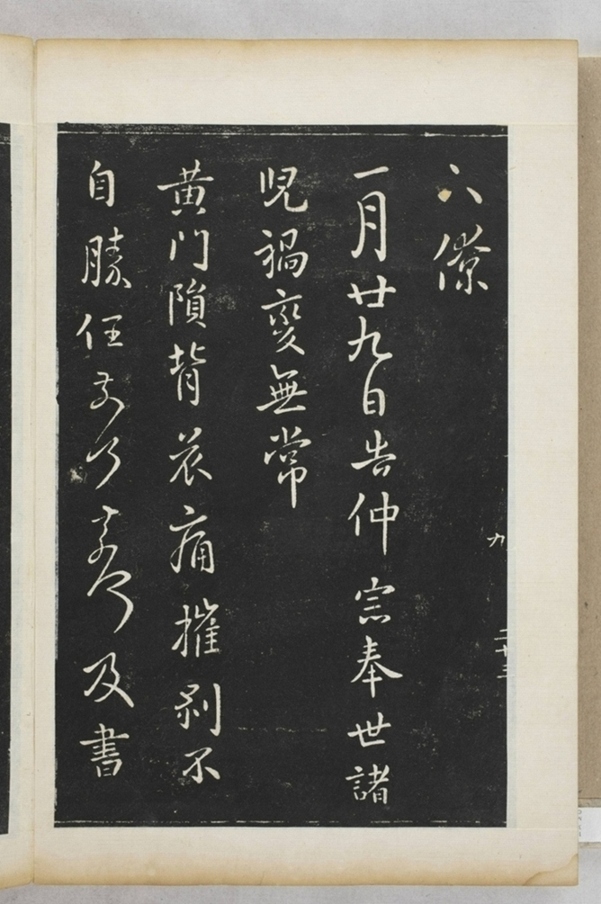 六僚
一月廿九日告仲宗奉世諸
児禍変無常
黄門隕背哀痛摧剥不
自勝任奈何奈何及書
九
二十三